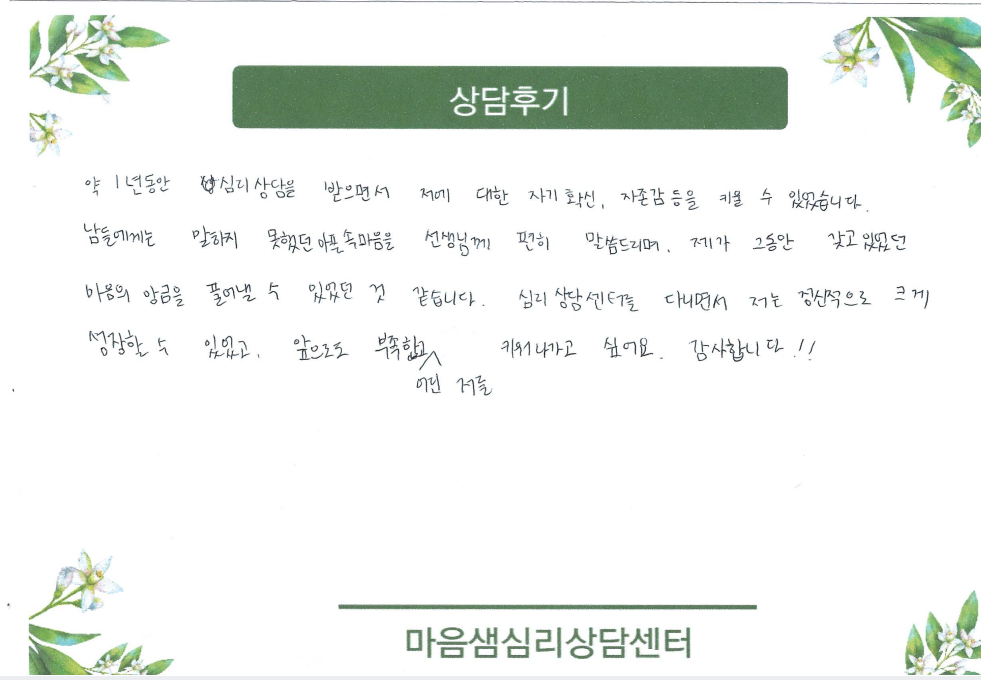 상담후기
약 1년동안 심리상담을 받으면서 저에 대한 자기확신, 자존감 등을 키울 수 있었습니다.
남들에게는 말하지 못했던 아픈 속마음을 선생님께 편히 말씀드리며, 제가 그동안 갖고있었던
마음의 앙금을 풀어낼 수 있었던 것 같습니다. 심리상담센터를 다니면서 저는 정신적으로 크게
성장할 수 있었고, 앞으로도 부족하고 키워나가고 싶어요. 감사합니다!!
어린 저를
마음샘심리상담센터